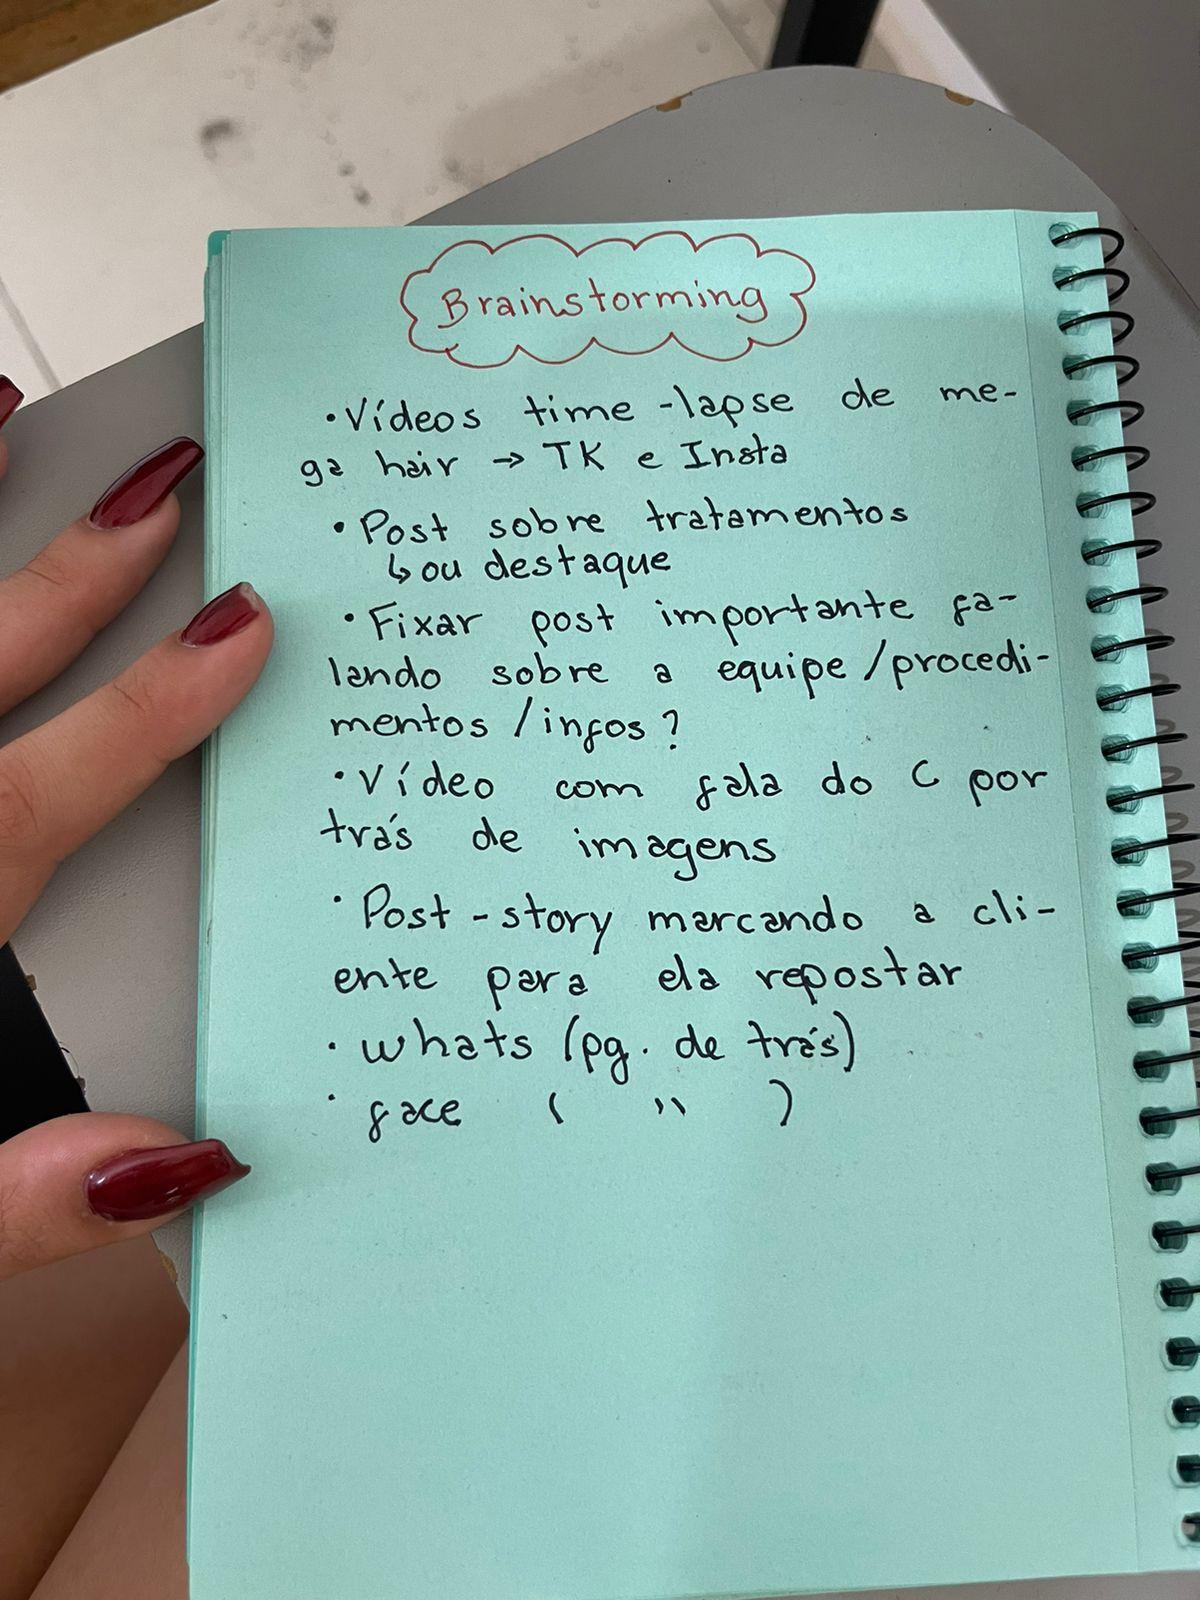 Brainstorming
• Vídeos time-lapse de me-
ga hair → TK e Insta
• Post sobre tratamentos
↳ ou destaque
• Fixar post importante fa-
lando sobre a equipe/procedi-
mentos/infos?
• Vídeo com fala do C por
trás de imagens
• Post-story marcando a cli-
ente para ela repostar
• whats (pg. de trás)
• face ( " )